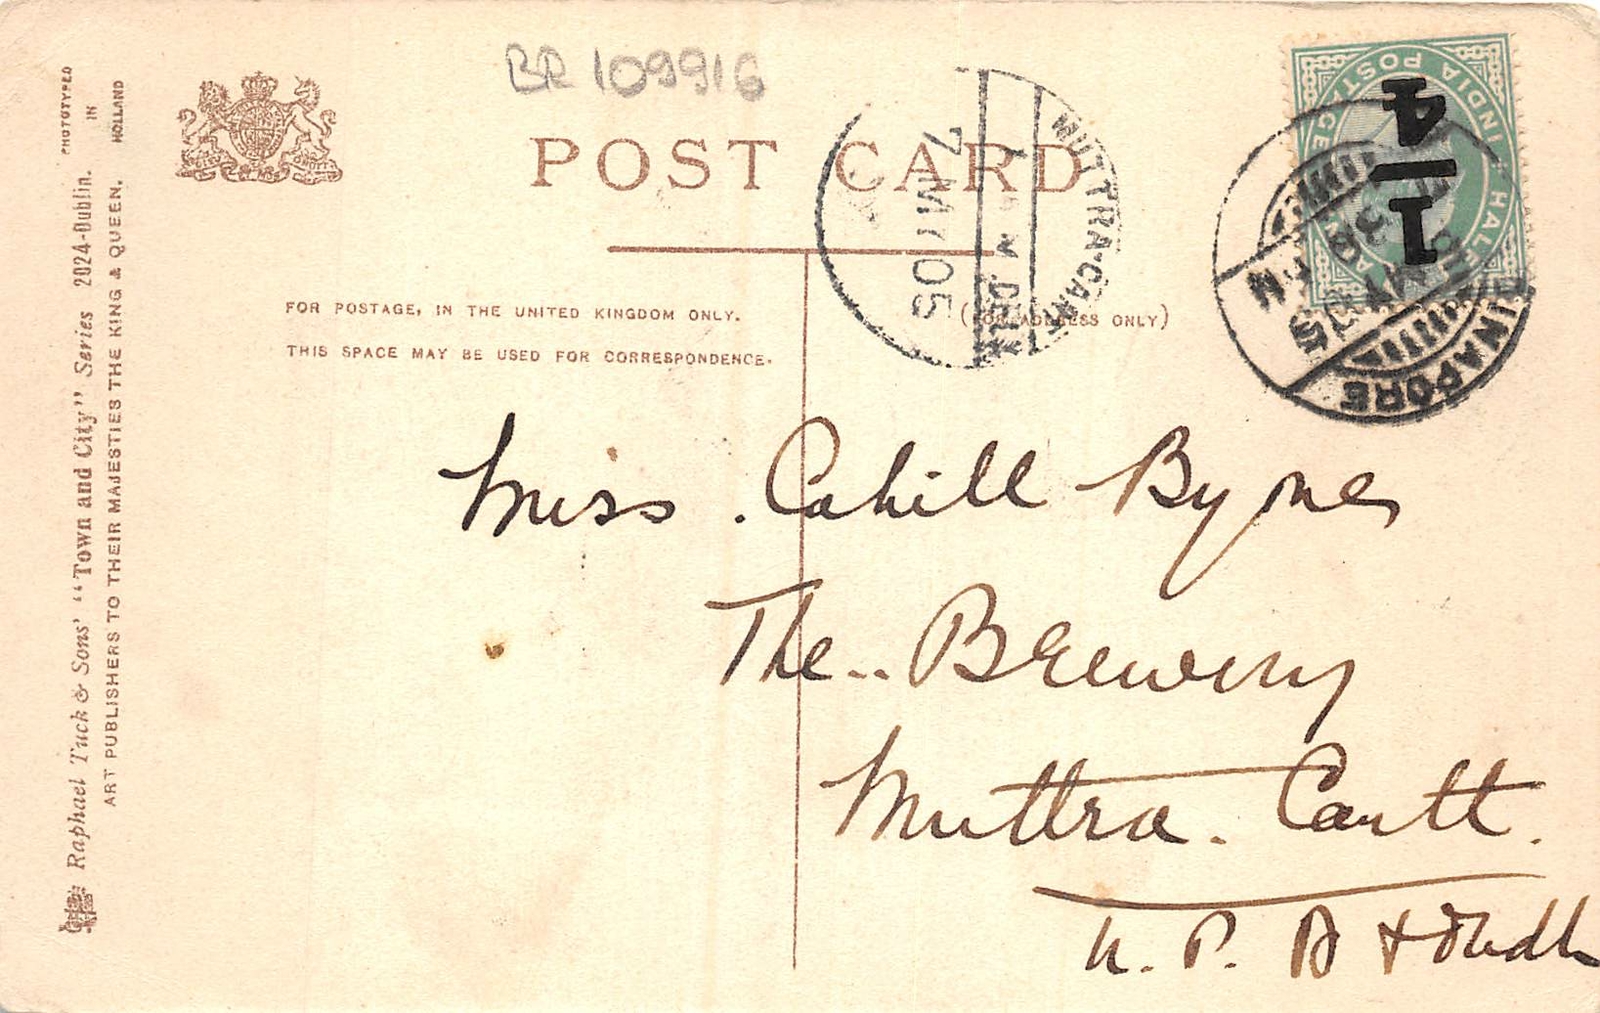 BR 109916
POST CARD
FOR POSTAGE, IN THE UNITED KINGDOM ONLY.
THIS SPACE MAY BE USED FOR CORRESPONDENCE.
(FOR ADDRESS ONLY)
PHOTOTYPED
IN
HOLLAND
Raphael Tuck & Sons' "Town and City" Series 2024-Dublin.
ART PUBLISHERS TO THEIR MAJESTIES THE KING & QUEEN.
MUTTRA-CANT
7 MY 05
INDIA POSTAGE
HALF
1/4
DINAPORE
Miss. Cahill Byrnes
The.. Brewery
Muttra. Cantt.
U. P. A & Oudh